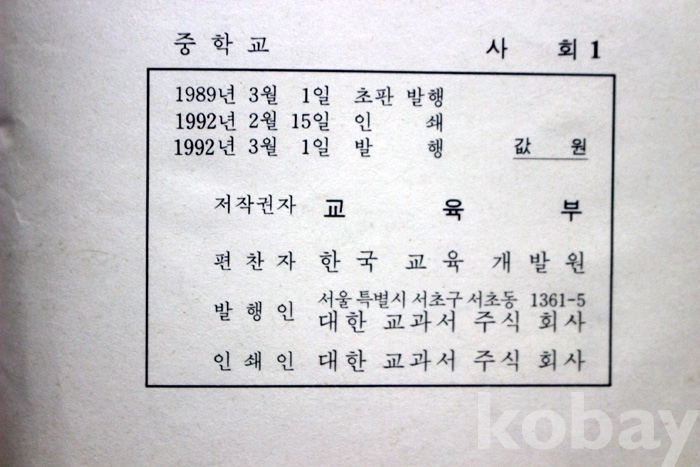 중학교 사회 1
1989년 3월 1일 초판 발행
1992년 2월 15일 인쇄
1992년 3월 1일 발행 값 원
저작권자 교육부
편찬자 한국 교육 개발원
발행인 서울 특별시 서초구 서초동 1361-5
대한 교과서 주식 회사
인쇄인 대한 교과서 주식 회사
kobay